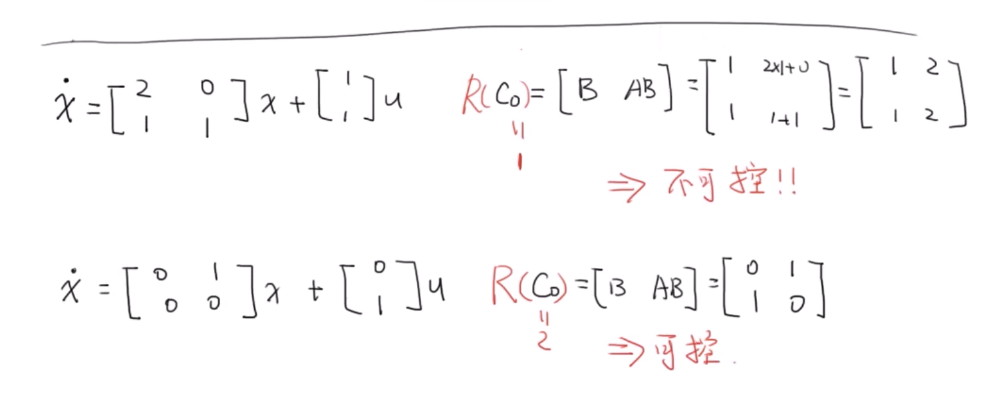 ẋ = [2 0; 1 1] x + [1; 1] u   R(C₀) = [B AB] = [1 2×1+0; 1 1+1] = [1 2; 1 2]
॥
1
⇒ 不可控!!
ẋ = [0 1; 0 0] x + [0; 1] u   R(C₀) = [B AB] = [0 1; 1 0]
॥
2
⇒ 可控.